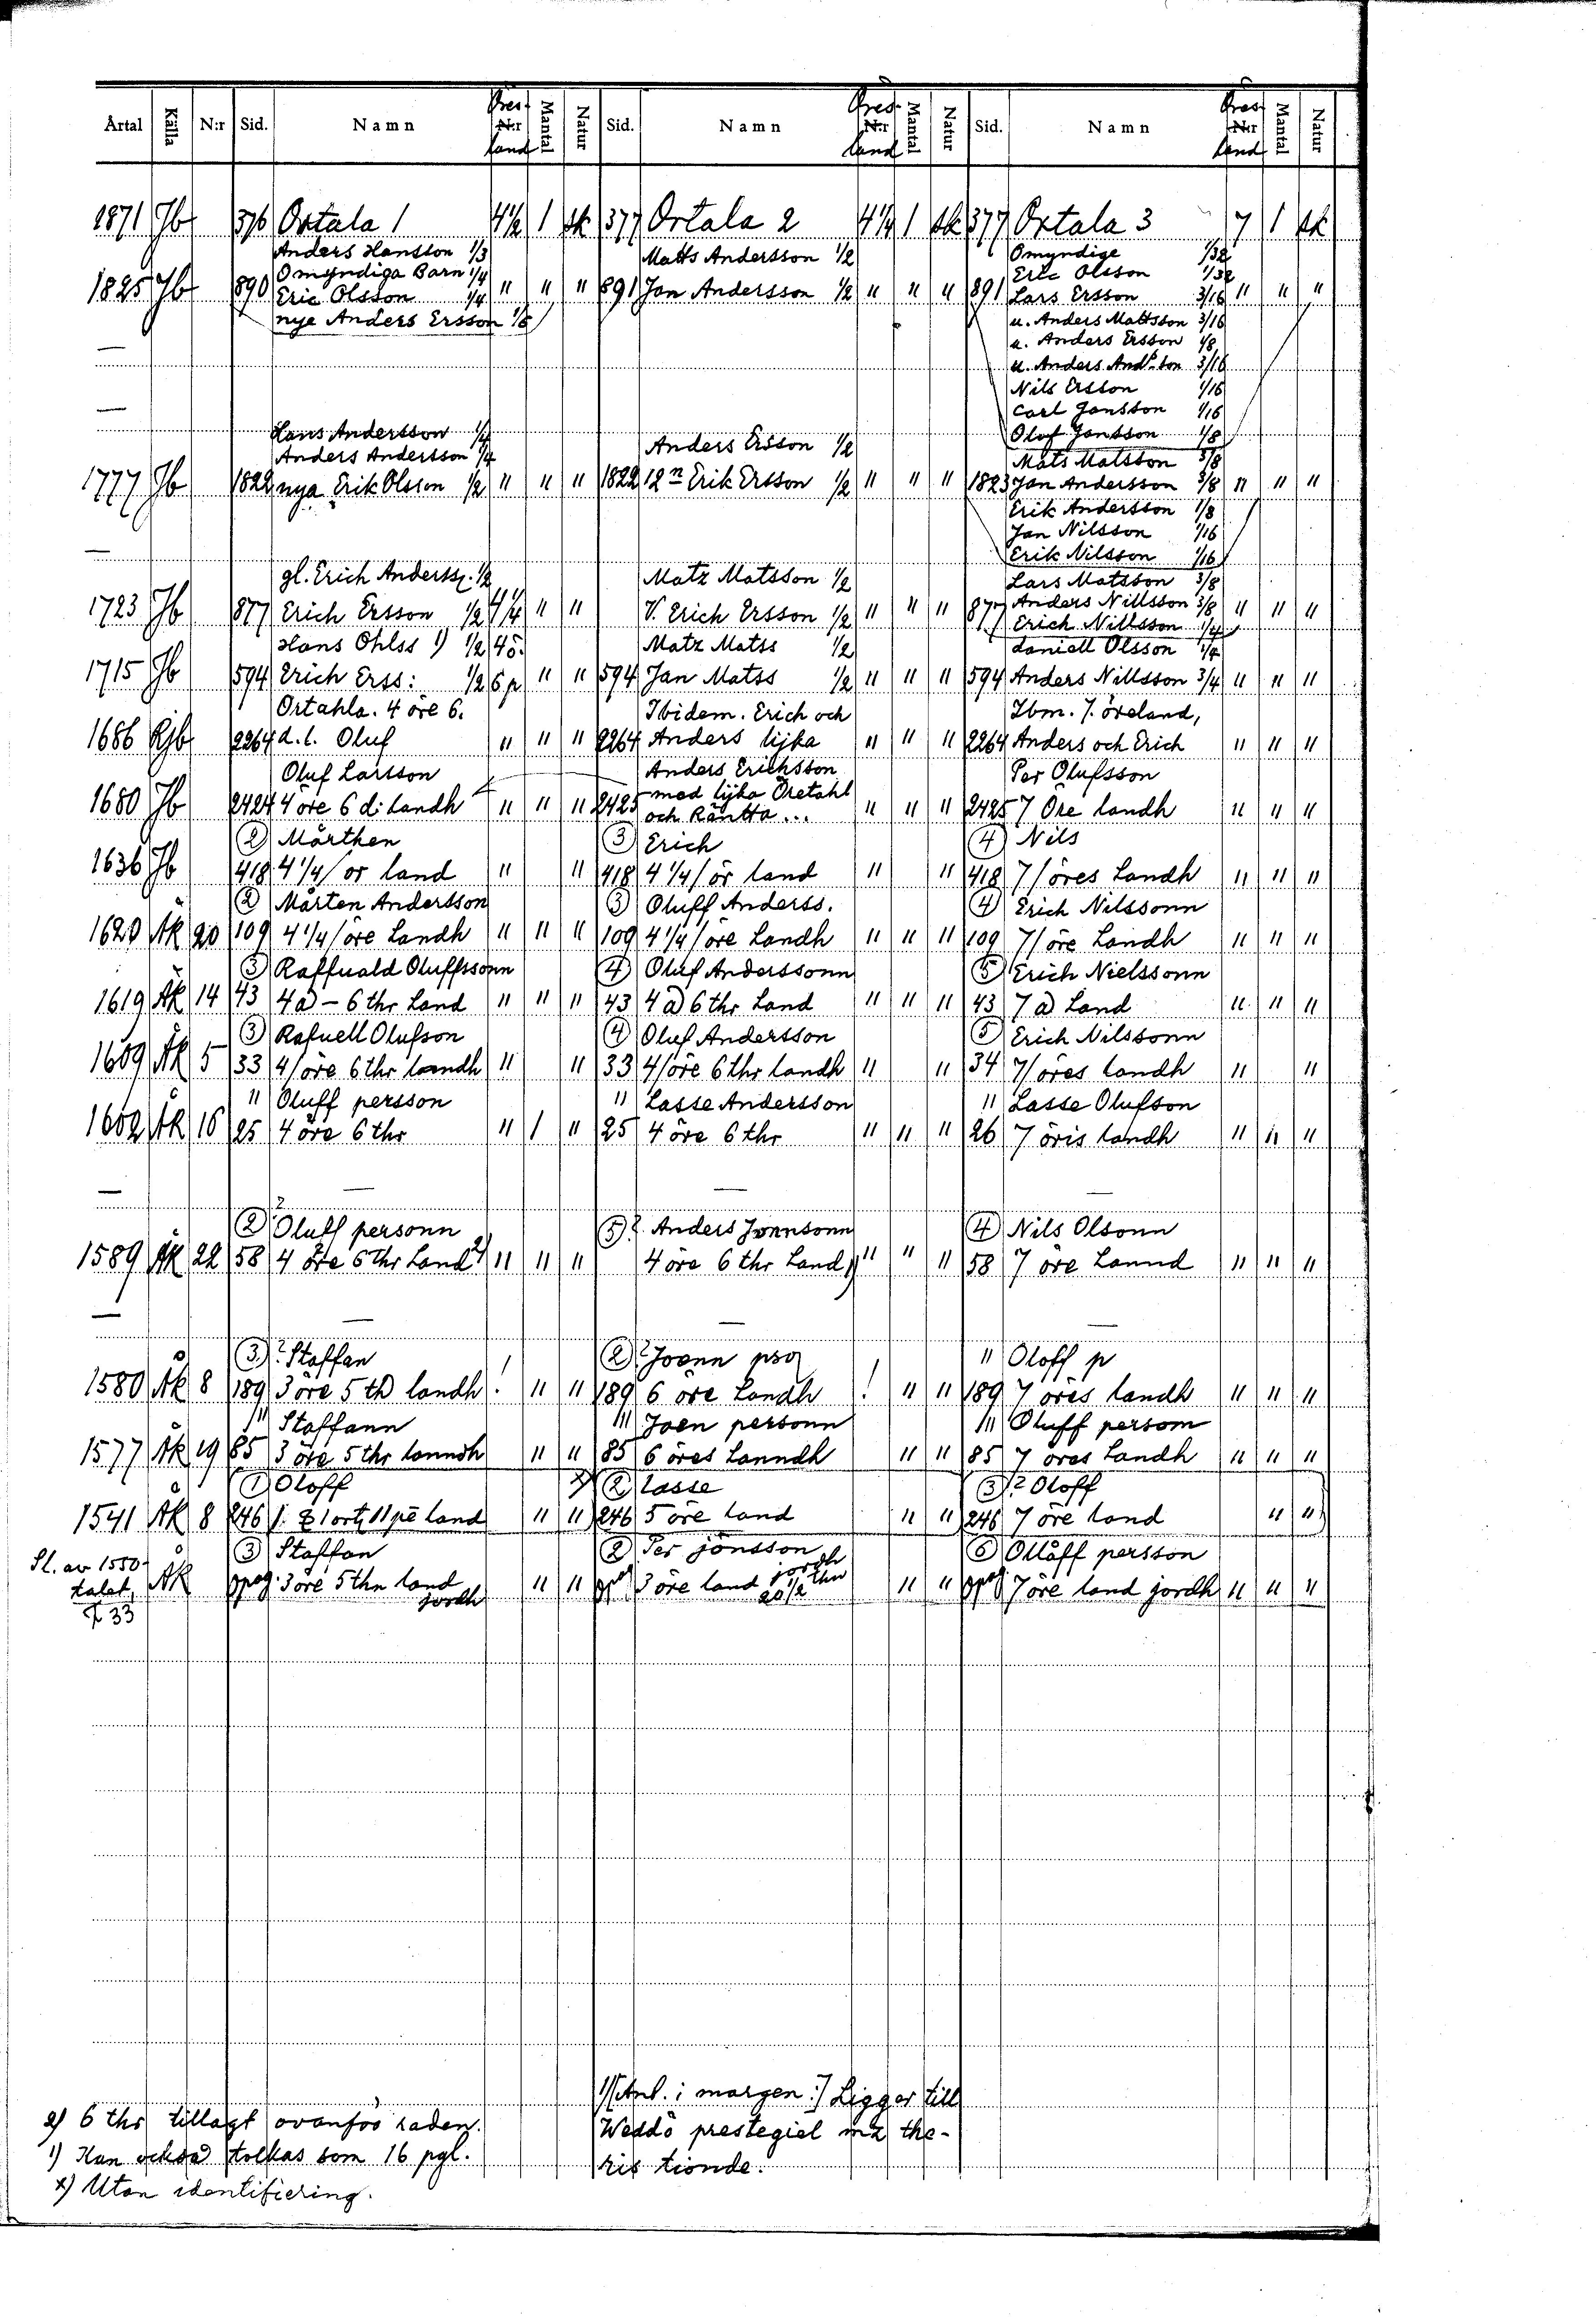 Årtal Källa N:r Sid. Namn N:r land Mantal Natur Sid. Namn N:r land Mantal Natur Sid. Namn N:r land Mantal Natur
1871 Jb 376 Ortala 1 4 1/2 1 sk 377 Ortala 2 4 1/4 1 sk 377 Ortala 3 7 1 sk
Anders Hansson 1/3 Matts Andersson 1/2 Omyndige 1/32
Omyndiga Barn 1/4 Eric Olsson 1/32
1825 Jb 890 Eric Olsson 1/4 " " " 891 Jan Andersson 1/2 " " " 891 Lars Ersson 3/16 " " "
nye Anders Ersson 1/6 u. Anders Mattsson 3/16
u. Anders Ersson 1/8
u. Anders And:son 3/16
Nils Ersson 1/16
Carl Jansson 1/16
Hans Andersson 1/4 Olof Jansson 1/8
Anders Andersson 1/4 Anders Ersson 1/2 Mats Matsson 3/8
1777 Jb 1822 nya Erik Olsson 1/2 " " " 1822 12n Erik Ersson 1/2 " " " 1823 Jan Andersson 3/8 " " "
Erik Andersson 1/8
Jan Nilsson 1/16
Erik Nilsson 1/16
gl. Erich Anderss. 1/2 Matz Matsson 1/2 Lars Matsson 3/8
1723 Jb 877 Erich Ersson 1/2 4 1/4 " " V. Erich Ersson 1/2 " " " 877 Anders Nillsson 3/8 " " "
Erich Nillsson 1/4
Hans Ohlss 1) 1/2 4ö. Matz Matss 1/2 Daniell Olsson 1/4
1715 Jb 594 Erich Erss: 1/2 6 p " " 594 Jan Matss 1/2 " " " 594 Anders Nillsson 3/4 " " "
Ortahla. 4 öre 6. Ibidem. Erich och Ibm. 7. öreland,
1686 Rjb 2264 d.l. Oluf " " " 2264 Anders lijka " " " 2264 Anders och Erich " " "
Oluf Larsson Anders Erichsson Per Olufsson
1680 Jb 2424 4 öre 6 d: landh " " " 2425 med lijka Öretahl " " " 2425 7 Öre landh " " "
och Räntta ...
(2) Mårthen (3) Erich (4) Nils
1636 Jb 418 4 1/4/ or land " " 418 4 1/4/ ör land " " 418 7/ öres Landh " " "
(2) Mårten Andersson (3) Oluff Anderss. (4) Erich Nilssonn
1620 Åk 20 109 4 1/4/ öre Landh " " " 109 4 1/4/ öre Landh " " " 109 7/ öre Landh " " "
(3) Raffuald Oluffssonn (4) Oluf Anderssonn (5) Erich Nielssonn
1619 Åk 14 43 4 a) - 6 thr Land " " " 43 4 a) 6 thr Land " " " 43 7 a) Land " " "
(3) Rafuell Olufson (4) Oluf Andersson (5) Erich Nilssonn
1609 Åk 5 33 4/ öre 6 thr landh " " 33 4/ öre 6 thr landh " " 34 7/ öres landh " "
" Oluff persson " Lasse Andersson " Lasse Olufson
1602 Åk 16 25 4 öre 6 thr " 1 " 25 4 öre 6 thr " " " 26 7 öris landh " " "
(2)? Oluff personn (5)? Anders Jonnsonn (4) Nils Olsonn
1589 Åk 22 58 4 öre 6 thr Land 2) " " " 4 öre 6 thr Land 1) " " " 58 7 öre Lannd " " "
(3)? Staffan (2)? Joenn " Oloff p
1580 Åk 8 189 3 öre 5 th landh ! " " 189 6 öre Landh ! " " 189 7 öres landh " " "
Staffann Joen personn Oluff persom
1577 Åk 19 85 3 öre 5 thr lanndh " " 85 6 öres Lanndh " " 85 7 öres Landh " " "
(1) Oloff x) (2) lasse (3)? Oloff
1541 Åk 8 246 land " " 246 5 öre land " " 246 7 öre land " "
Sl. av 1550- (3) Staffan (2) Per jönsson (6) Ollåff persson
talet, Åk opag. 3 öre 5 thn land jordh " " opag 3 öre land jordh 20 1/2 thn " " opag. 7 öre land jordh " " "
F 33
1) [Anl. i margen:] Ligger till
Weddö prestegiel mz the-
ris tionde.
2) 6 thr tillagt ovanför raden.
1) Kan också tolkas som 16 pgl.
x) Utan identifiering.